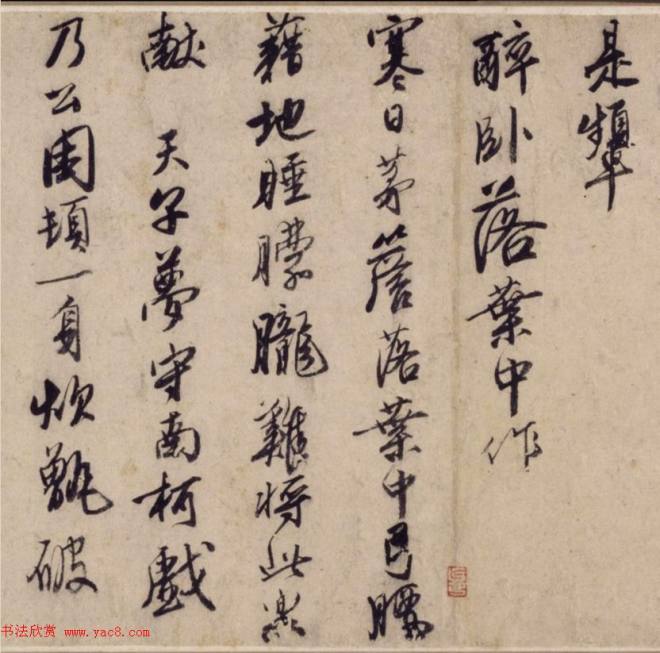 是顰
醉卧落葉中作
寒日茅簷落葉中
藉地睡朦朧難將此樂
獻 天子夢守南柯戲
乃公困頓一身炊甑破
书法欣赏 www.yac8.com